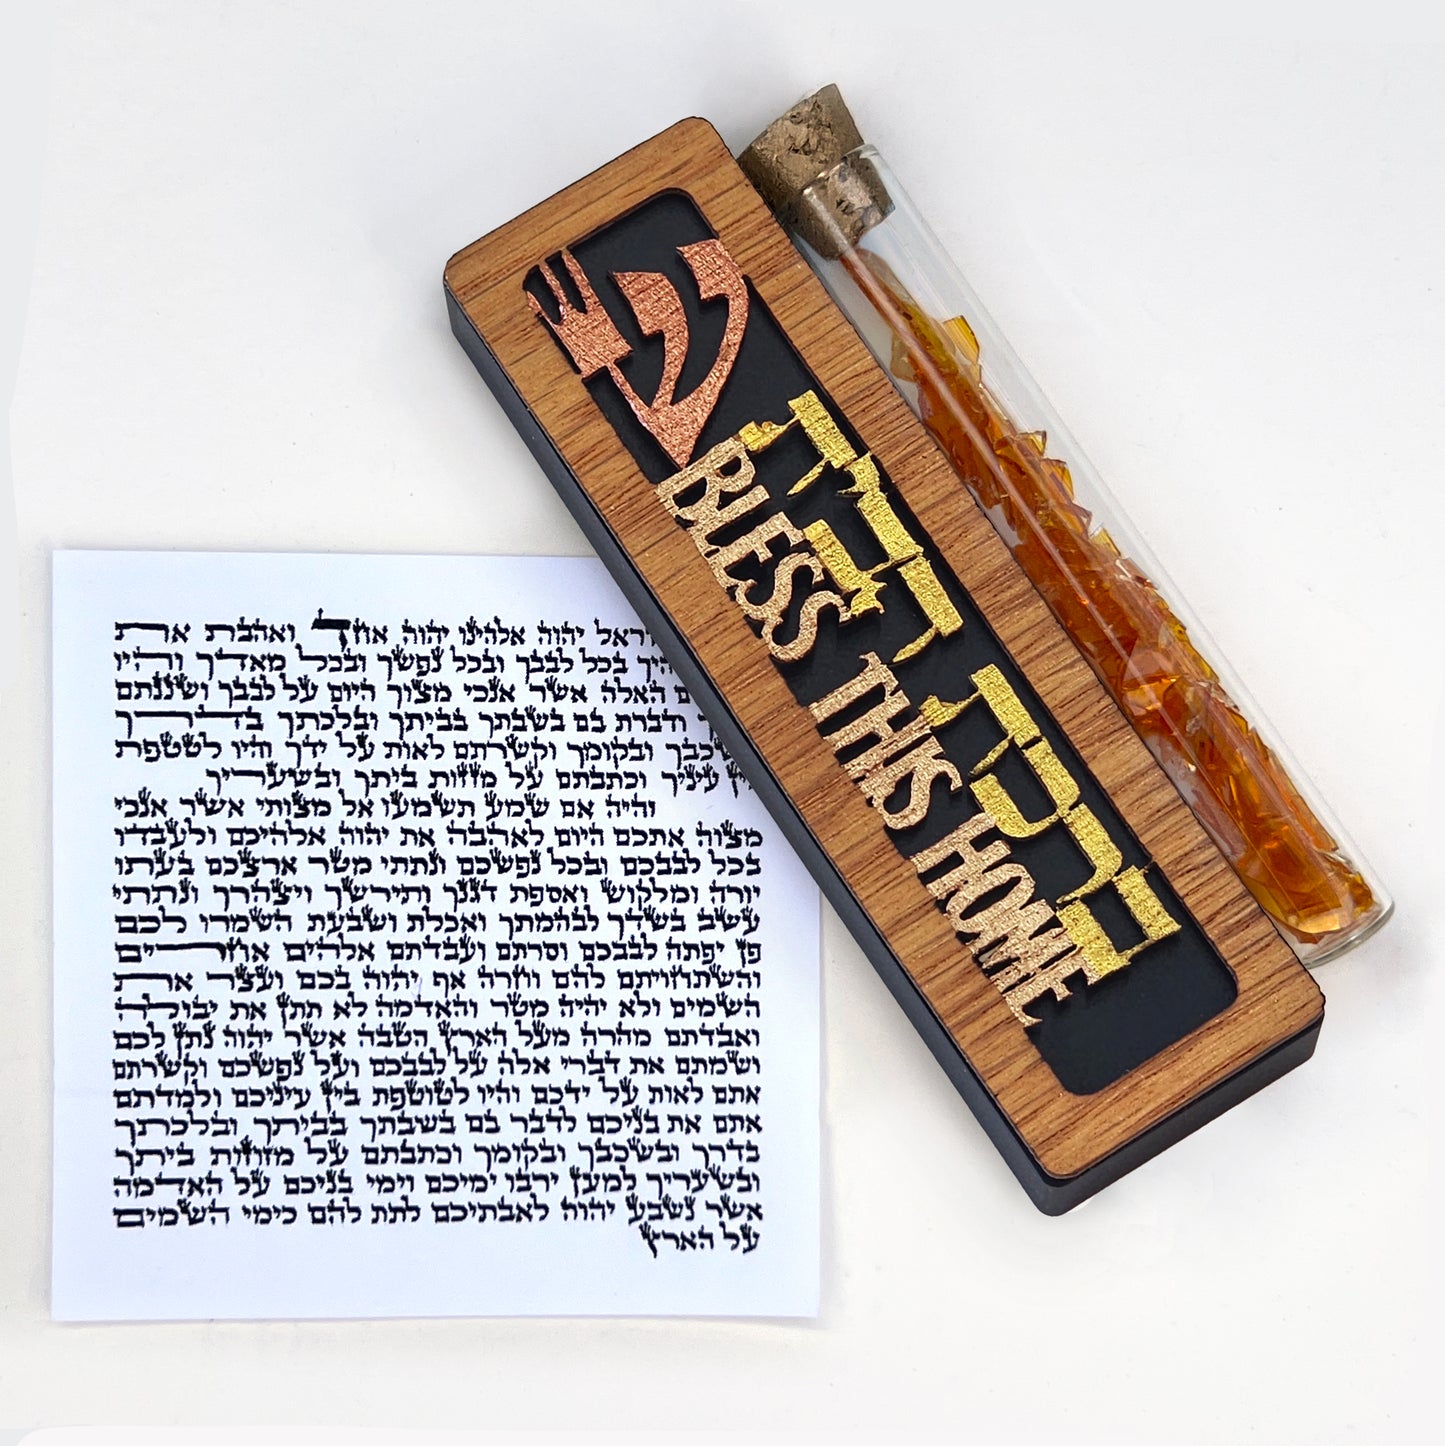 יהוה אלהינו יהוה אחד ואהבת את
בכל לבבך ובכל נפשך ובכל מאדך והיו
האלה אשר אנכי מצוך היום על לבבך ושננתם
ודברת בם בשבתך בביתך ובלכתך בדרך
ובקומך וקשרתם לאות על ידך והיו לטטפת
עיניך וכתבתם על מזזות ביתך ובשעריך
והיה אם שמע תשמעו אל מצותי אשר אנכי
מצוה אתכם היום לאהבה את יהוה אלהיכם ולעבדו
בכל לבבכם ובכל נפשכם ונתתי מטר ארצכם בעתו
יורה ומלקוש ואספת דגנך ותירשך ויצהרך ונתתי
עשב בשדך לבהמתך ואכלת ושבעת השמרו לכם
פן יפתה לבבכם וסרתם ועבדתם אלהים אחרים
והשתחויתם להם וחרה אף יהוה בכם ועצר את
השמים ולא יהיה מטר והאדמה לא תתן את יבולה
ואבדתם מהרה מעל הארץ הטבה אשר יהוה נתן לכם
ושמתם את דברי אלה על לבבכם ועל נפשכם וקשרתם
אתם לאות על ידכם והיו לטוטפת בין עיניכם ולמדתם
אתם את בניכם לדבר בם בשבתך בביתך ובלכתך
בדרך ובשכבך ובקומך וכתבתם על מזוזות ביתך
ובשעריך למען ירבו ימיכם וימי בניכם על האדמה
אשר נשבע יהוה לאבתיכם לתת להם כימי השמים
על הארץ
ש
ברכת הבית
BLESS THIS HOME